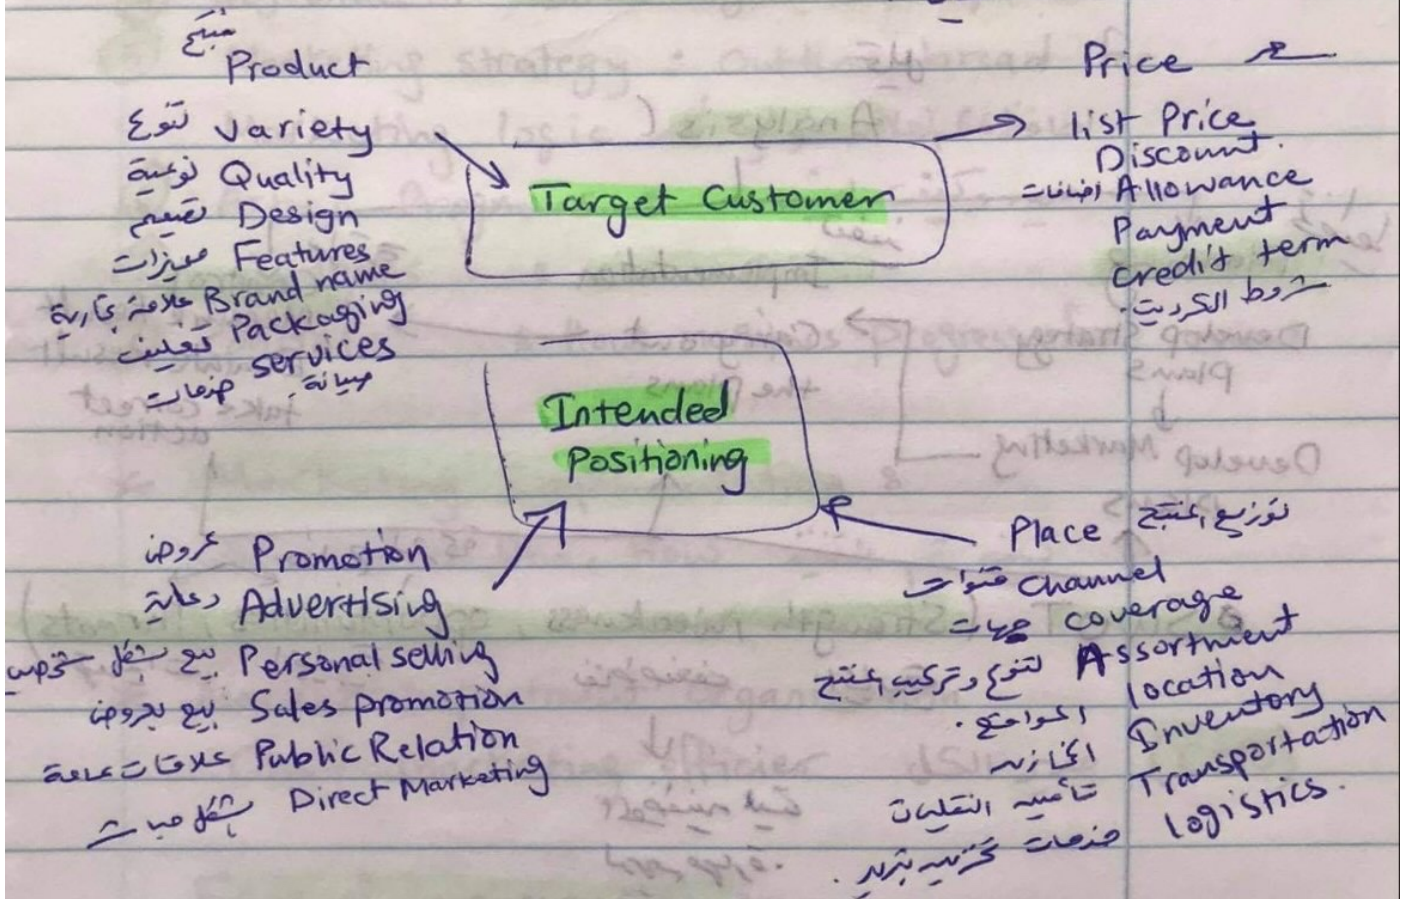 منتج
Product
تنوع Variety
نوعية Quality
تصميم Design
مميزات Features
علامة تجارية Brand name
تغليف Packaging
خدمات services
صيانة.
Target Customer
Price سعر
list Price
Discount.
Allowance اضافات
Payment
credit term
شروط الكرديت.
Intended
Positioning
عروض Promotion
دعاية Advertising
بيع بشكل شخصي Personal selling
بيع بعروض Sales promotion
علاقات عامة Public Relation
بشكل مباشر Direct Marketing
Place توزيع المنتج
قنوات channel
جهات coverage
تنوع وتركيب المنتج Assortment
المواقع. location
المخازن Inventory
تأمين النقليات Transportation
خدمات تخزين تبريد. logistics.